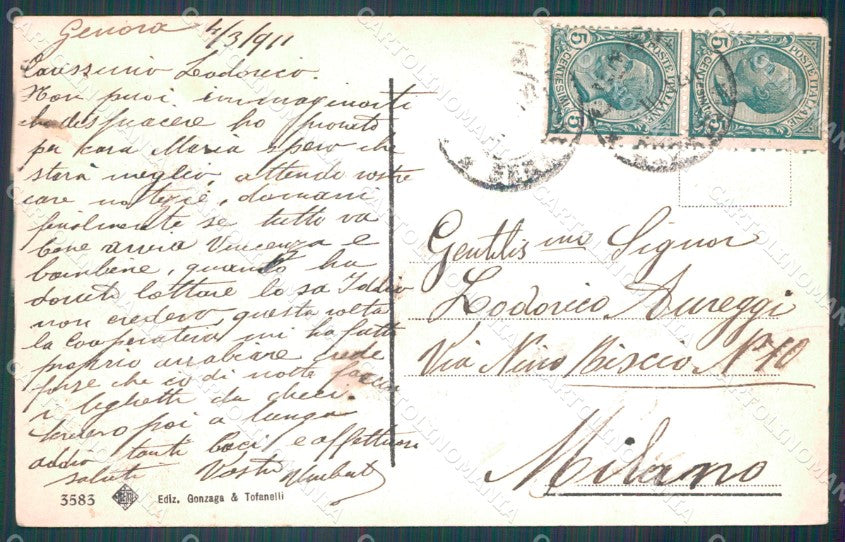 Genova 4/3/911
Carissimo Lodovico.
Non puoi immaginarti
che dispiacere ho provato
per cara Maria spero che
sterà meglio, attendo vostre
care notizie, domani
finalmente se tutto va
bene arriva Vincenza e
bambine, quando ha
dovuto lottare lo sa Iddio
non credevo questa volta
la cooperativa mi ha fatto
proprio arrabiare
forse che co di notte
i biglietti da dieci.
scrivero poi a lungo
addio tanti baci e affettuosi
saluti Vostro Umberto
3583 Ediz. Gonzaga & Tofanelli
POSTE ITALIANE
CENTESIMI
5 5
POSTE ITALIANE
CENTESIMI
5 5
Gentilis mo Signor
Lodovico Aureggi
Via Nino Biscio No 10
Milano
CARTOLINOMANIA